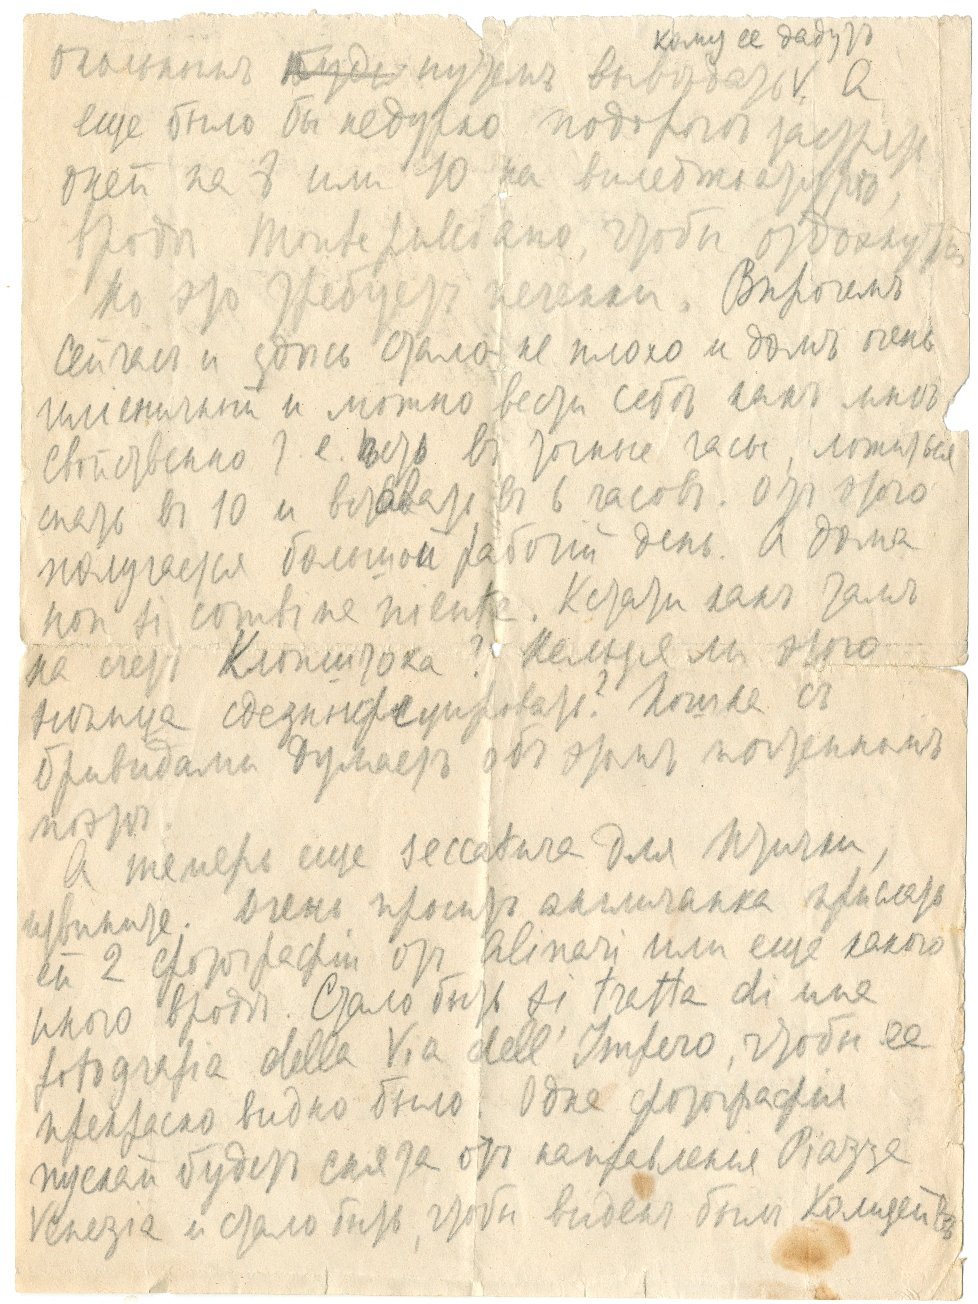 кому ее дадутъ
окольнымъ путемъ вывѣдать. А
еще было бы недурно подорогѣ застрять
дней на 8 или 10 на виледжьятурѣ,
вродѣ Montepulciano, чтобы отдохнуть
но это требуетъ печенки. Впрочемъ
сейчасъ и здѣсь стало не плохо и домъ очень
гигіеничный и можно вести себѣ какъ мнѣ
свойственно т. е. ѣсть въ точные часы, ложиться
спать въ 10 и вставать въ 6 часовъ. Отъ этого
получается большой рабочій день. А дома
non si combina niente. Кстати какъ тамъ
на счетъ Клопштока? Нельзя ли этого
сдезынфецировать? Кошка съ
бривидами думаетъ объ этомъ почтенномъ
поэтѣ.
А теперь еще seccatura для Птички,
извините. Очень проситъ англичанка прислать
ей 2 фотографіи отъ Alinari или еще какого
иного вродѣ. Стало быть si tratta di una
fotografia della Via dell' Impero, чтобы ее
прекрасно видно было. Одна фотографія
пускай будетъ снята отъ направленія Piazza
Venezia и стало быть, чтобы виденъ былъ Колизей